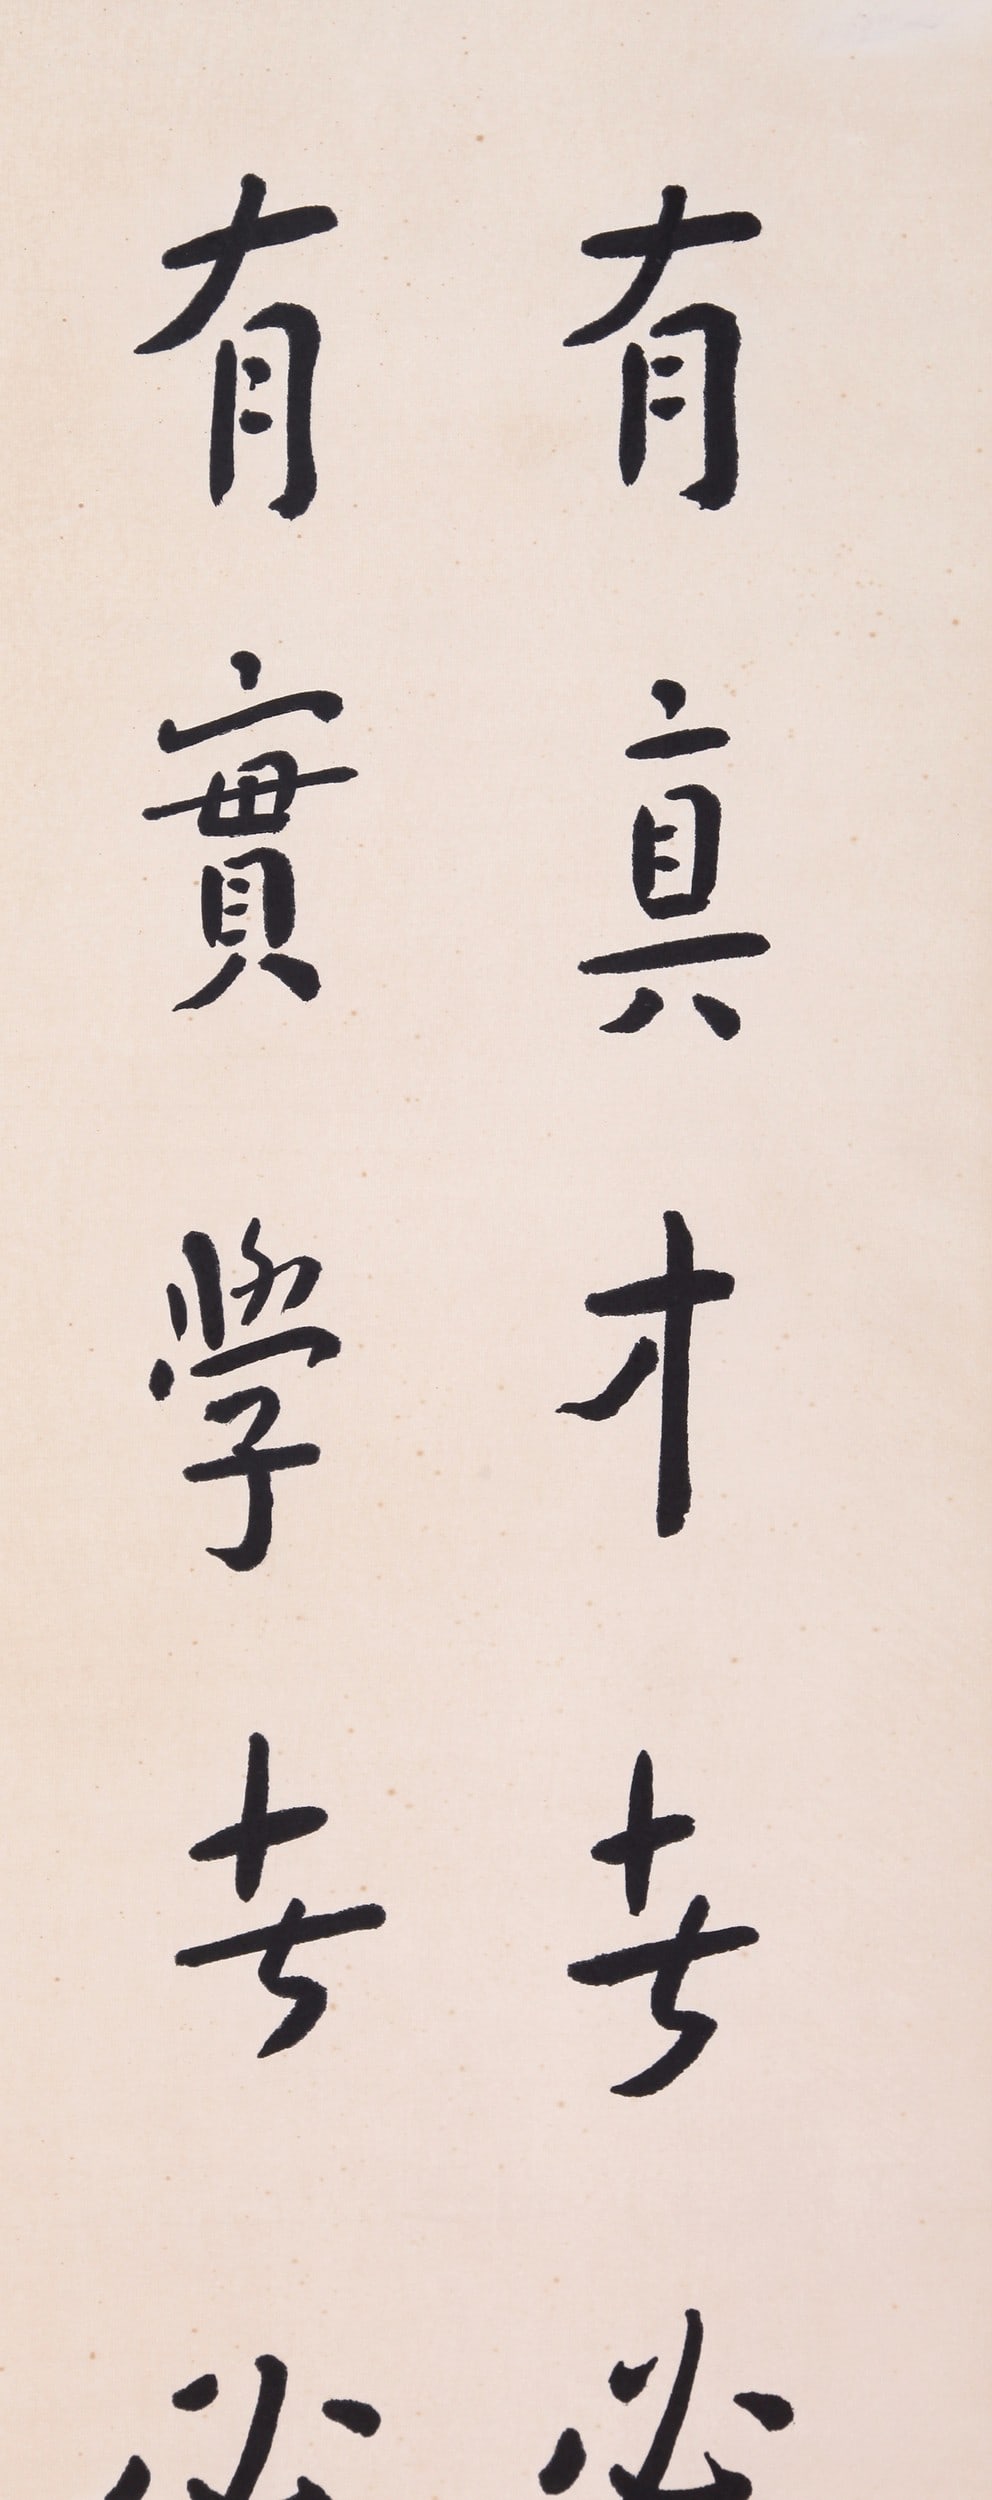 有真才者必
有實學者必